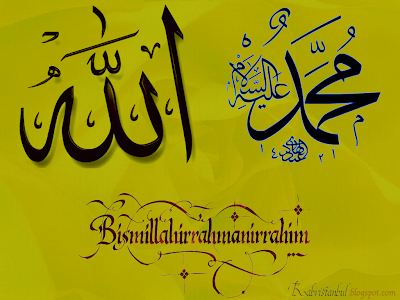 الله
محمد
عليه السلام
١٤٢١
Bismillahirrahmanirrahim
Kabristanbul.blogspot.com